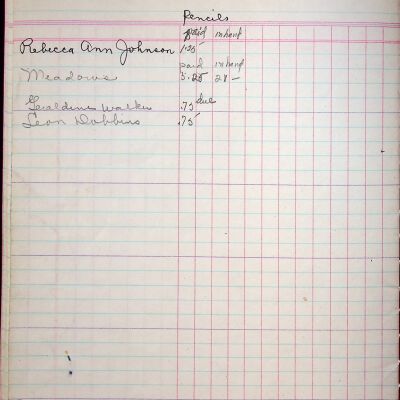 Pencils
paid in hand
Rebecca Ann Johnson 1.25
paid in hand
Meadows 5.25 21 —
due
Geraldine Walker .75
Leon Dobbins .75